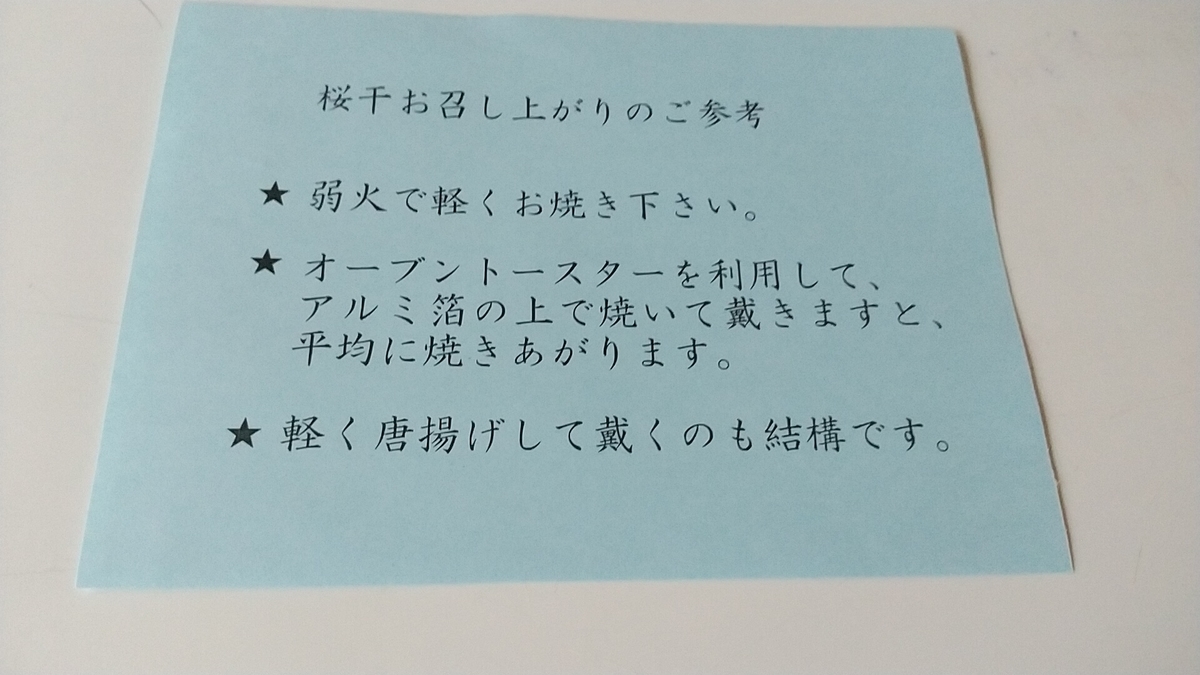 桜干お召し上がりのご参考
★ 弱火で軽くお焼き下さい。
★ オーブントースターを利用して、
アルミ箔の上で焼いて戴きますと、
平均に焼きあがります。
★ 軽く唐揚げして戴くのも結構です。